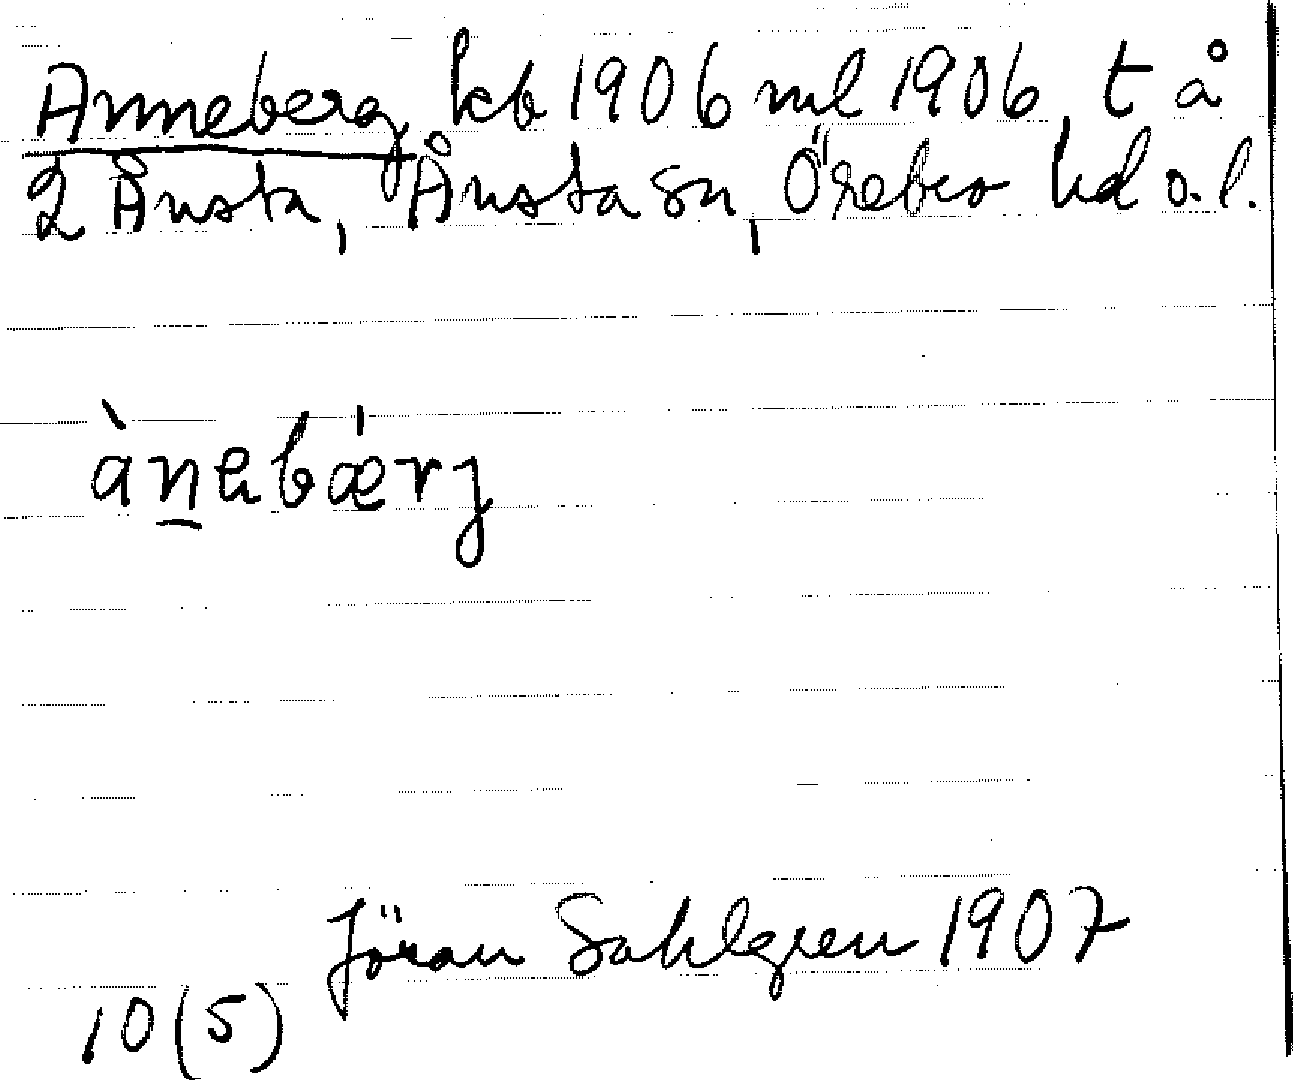 Anneberg kb 1906 ml 1906, t å
2 Ånsta, Ånsta sn, Örebro hd o.l.
àn̲ebær̍j
Jöran Sahlgren 1907
10(5)